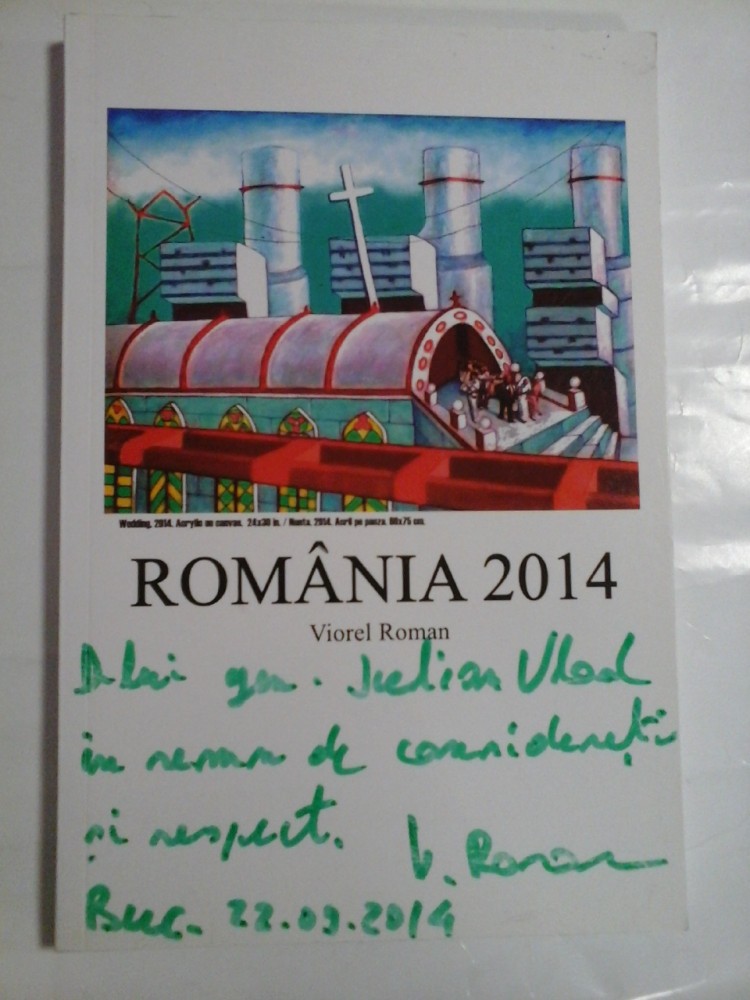 Wedding, 2014. Acrylic on canvas. 24x30 in. / Nunta, 2014. Acril pe panza. 60x75 cm.
ROMÂNIA 2014
Viorel Roman
D-lui gen. Iulian Vlad
în semn de considerați
și respect. V. Roman
Buc. 22.09.2014